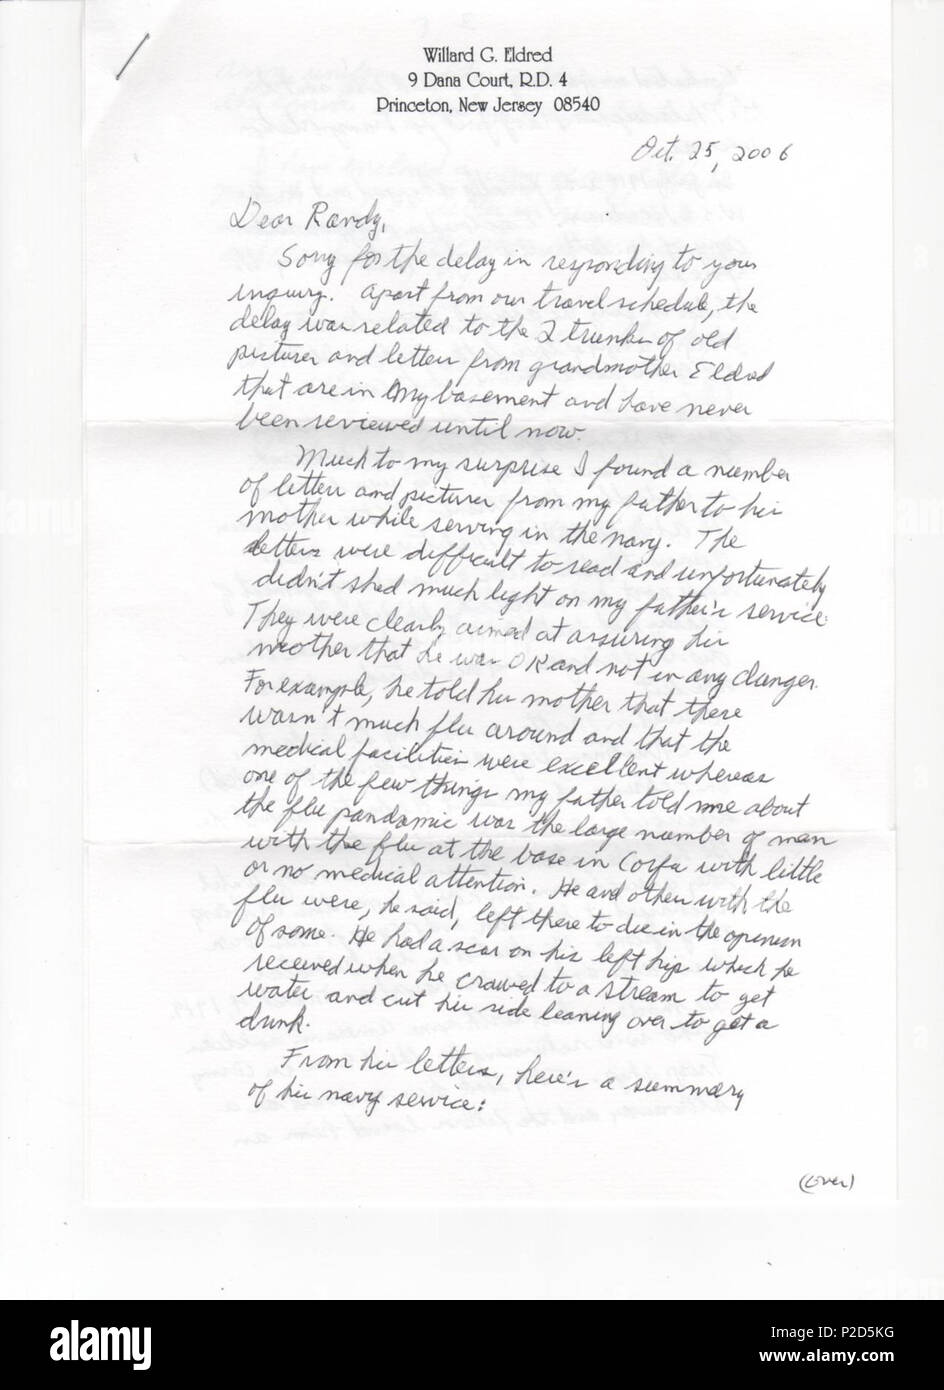 Willard G. Eldred
9 Dana Court, R.D. 4
Princeton, New Jersey 08540
Oct. 25, 2006
Dear Randy,
Sorry for the delay in responding to your
inquiry. Apart from our travel schedule, the
delay was related to the 2 trunks of old
pictures and letters from grandmother Eldred
that are in my basement and have never
been reviewed until now.
Much to my surprise I found a number
of letters and pictures from my father to his
mother while serving in the navy. The
letters were difficult to read and unfortunately
didn't shed much light on my father's service.
They were clearly aimed at assuring his
mother that he was OK and not in any danger.
For example, he told his mother that there
wasn't much flu around and that the
medical facilities were excellent whereas
one of the few things my father told me about
the flu pandamic was the large number of men
with the flu at the base in Corfu with little
or no medical attention. He and others with the
flu were, he said, left there to die in the open
of some. He had a scar on his left hip which he
received when he crawled to a stream to get
water and cut his side leaning over to get a
drink.
From his letters, here's a summary
of his navy service:
(over)
alamy
Image ID: P2D5KG
www.alamy.com